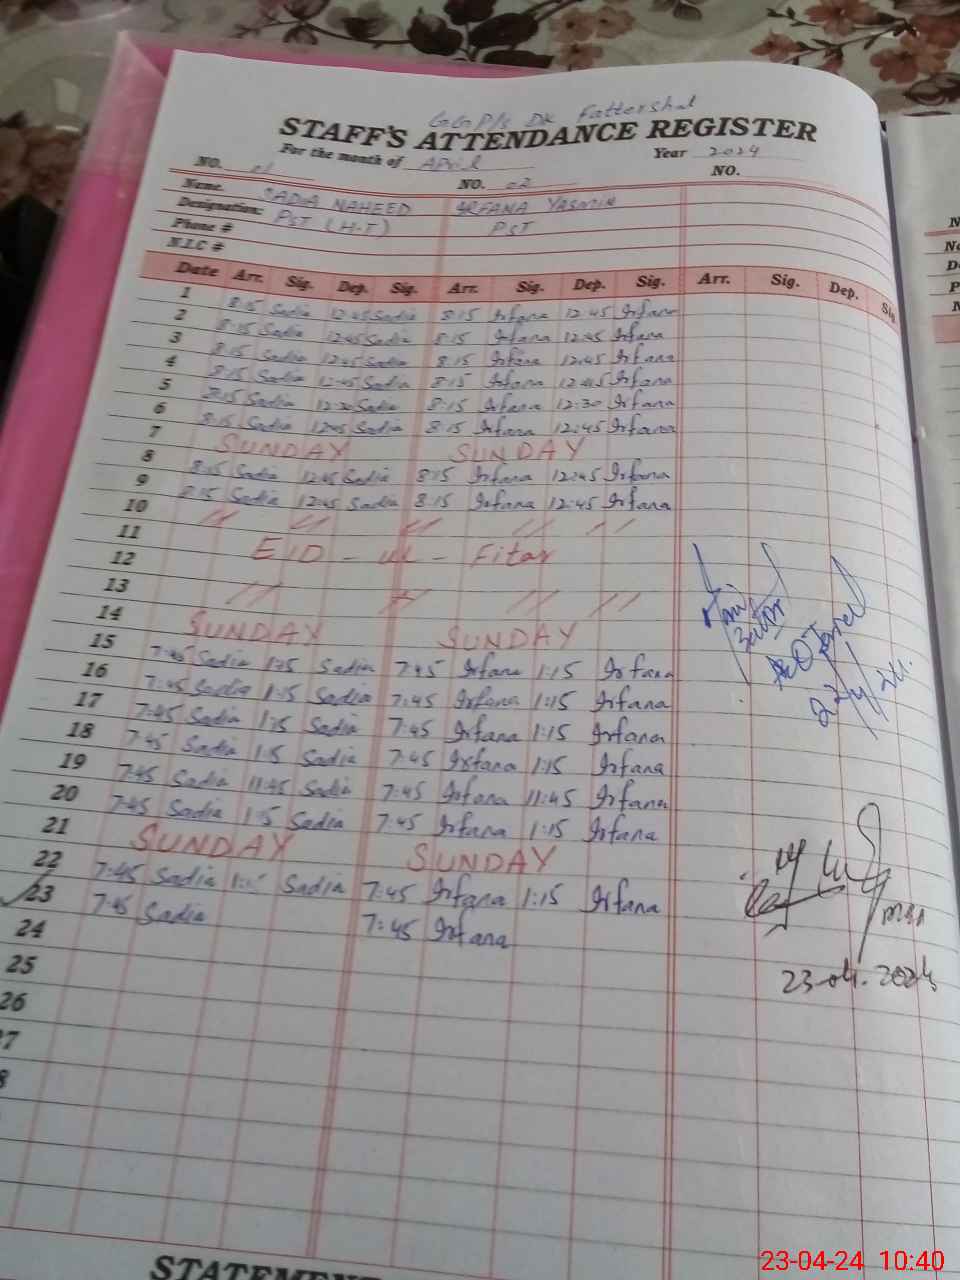 GGP/s DK Fattershal
STAFF'S ATTENDANCE REGISTER
For the month of April Year 2024
NO. 01 NO. 02 NO.
Name. SADIA NAHEED IRFANA YASMIN
Designation: PST (H-T) PST
Phone #
N.I.C #
Date Arr. Sig. Dep. Sig. Arr. Sig. Dep. Sig. Arr. Sig. Dep. Sig.
1 8:15 Sadia 12:45 Sadia 8:15 Irfana 12:45 Irfana
2 8:15 Sadia 12:45 Sadia 8:15 Irfana 12:45 Irfana
3 8:15 Sadia 12:45 Sadia 8:15 Irfana 12:45 Irfana
4 8:15 Sadia 12:45 Sadia 8:15 Irfana 12:45 Irfana
5 8:15 Sadia 12:30 Sadia 8:15 Irfana 12:30 Irfana
6 8:15 Sadia 12:45 Sadia 8:15 Irfana 12:45 Irfana
7 SUNDAY SUNDAY
8 8:15 Sadia 12:45 Sadia 8:15 Irfana 12:45 Irfana
9 8:15 Sadia 12:45 Sadia 8:15 Irfana 12:45 Irfana
10 // // // // //
11 EID - ul - Fitar
12
13 // // // //
14 SUNDAY SUNDAY
15 7:45 Sadia 1:15 Sadia 7:45 Irfana 1:15 Irfana
16 7:45 Sadia 1:15 Sadia 7:45 Irfana 1:15 Irfana
17 7:45 Sadia 1:15 Sadia 7:45 Irfana 1:15 Irfana
18 7:45 Sadia 1:15 Sadia 7:45 Irfana 1:15 Irfana
19 7:45 Sadia 11:45 Sadia 7:45 Irfana 11:45 Irfana
20 7:45 Sadia 1:15 Sadia 7:45 Irfana 1:15 Irfana
21 SUNDAY SUNDAY
22 7:45 Sadia 1:15 Sadia 7:45 Irfana 1:15 Irfana
23 7:45 Sadia 7:45 Irfana
24
25
26
23-04-2024
STATEMENT
23-04-24 10:40